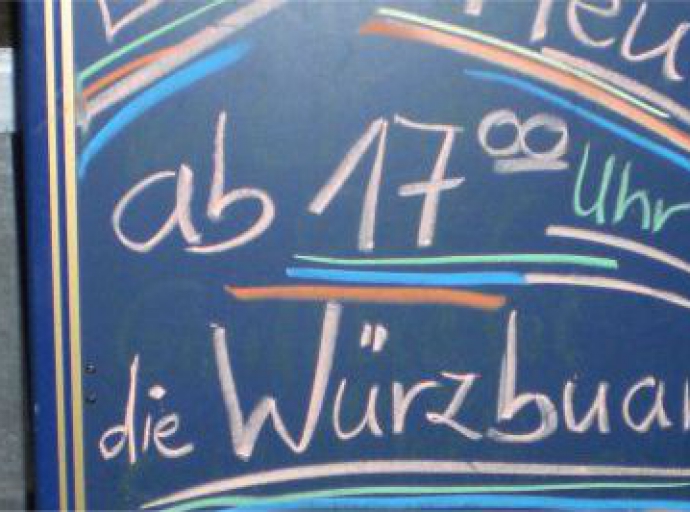 ab 17⁰⁰ Uhr
die Würzbua